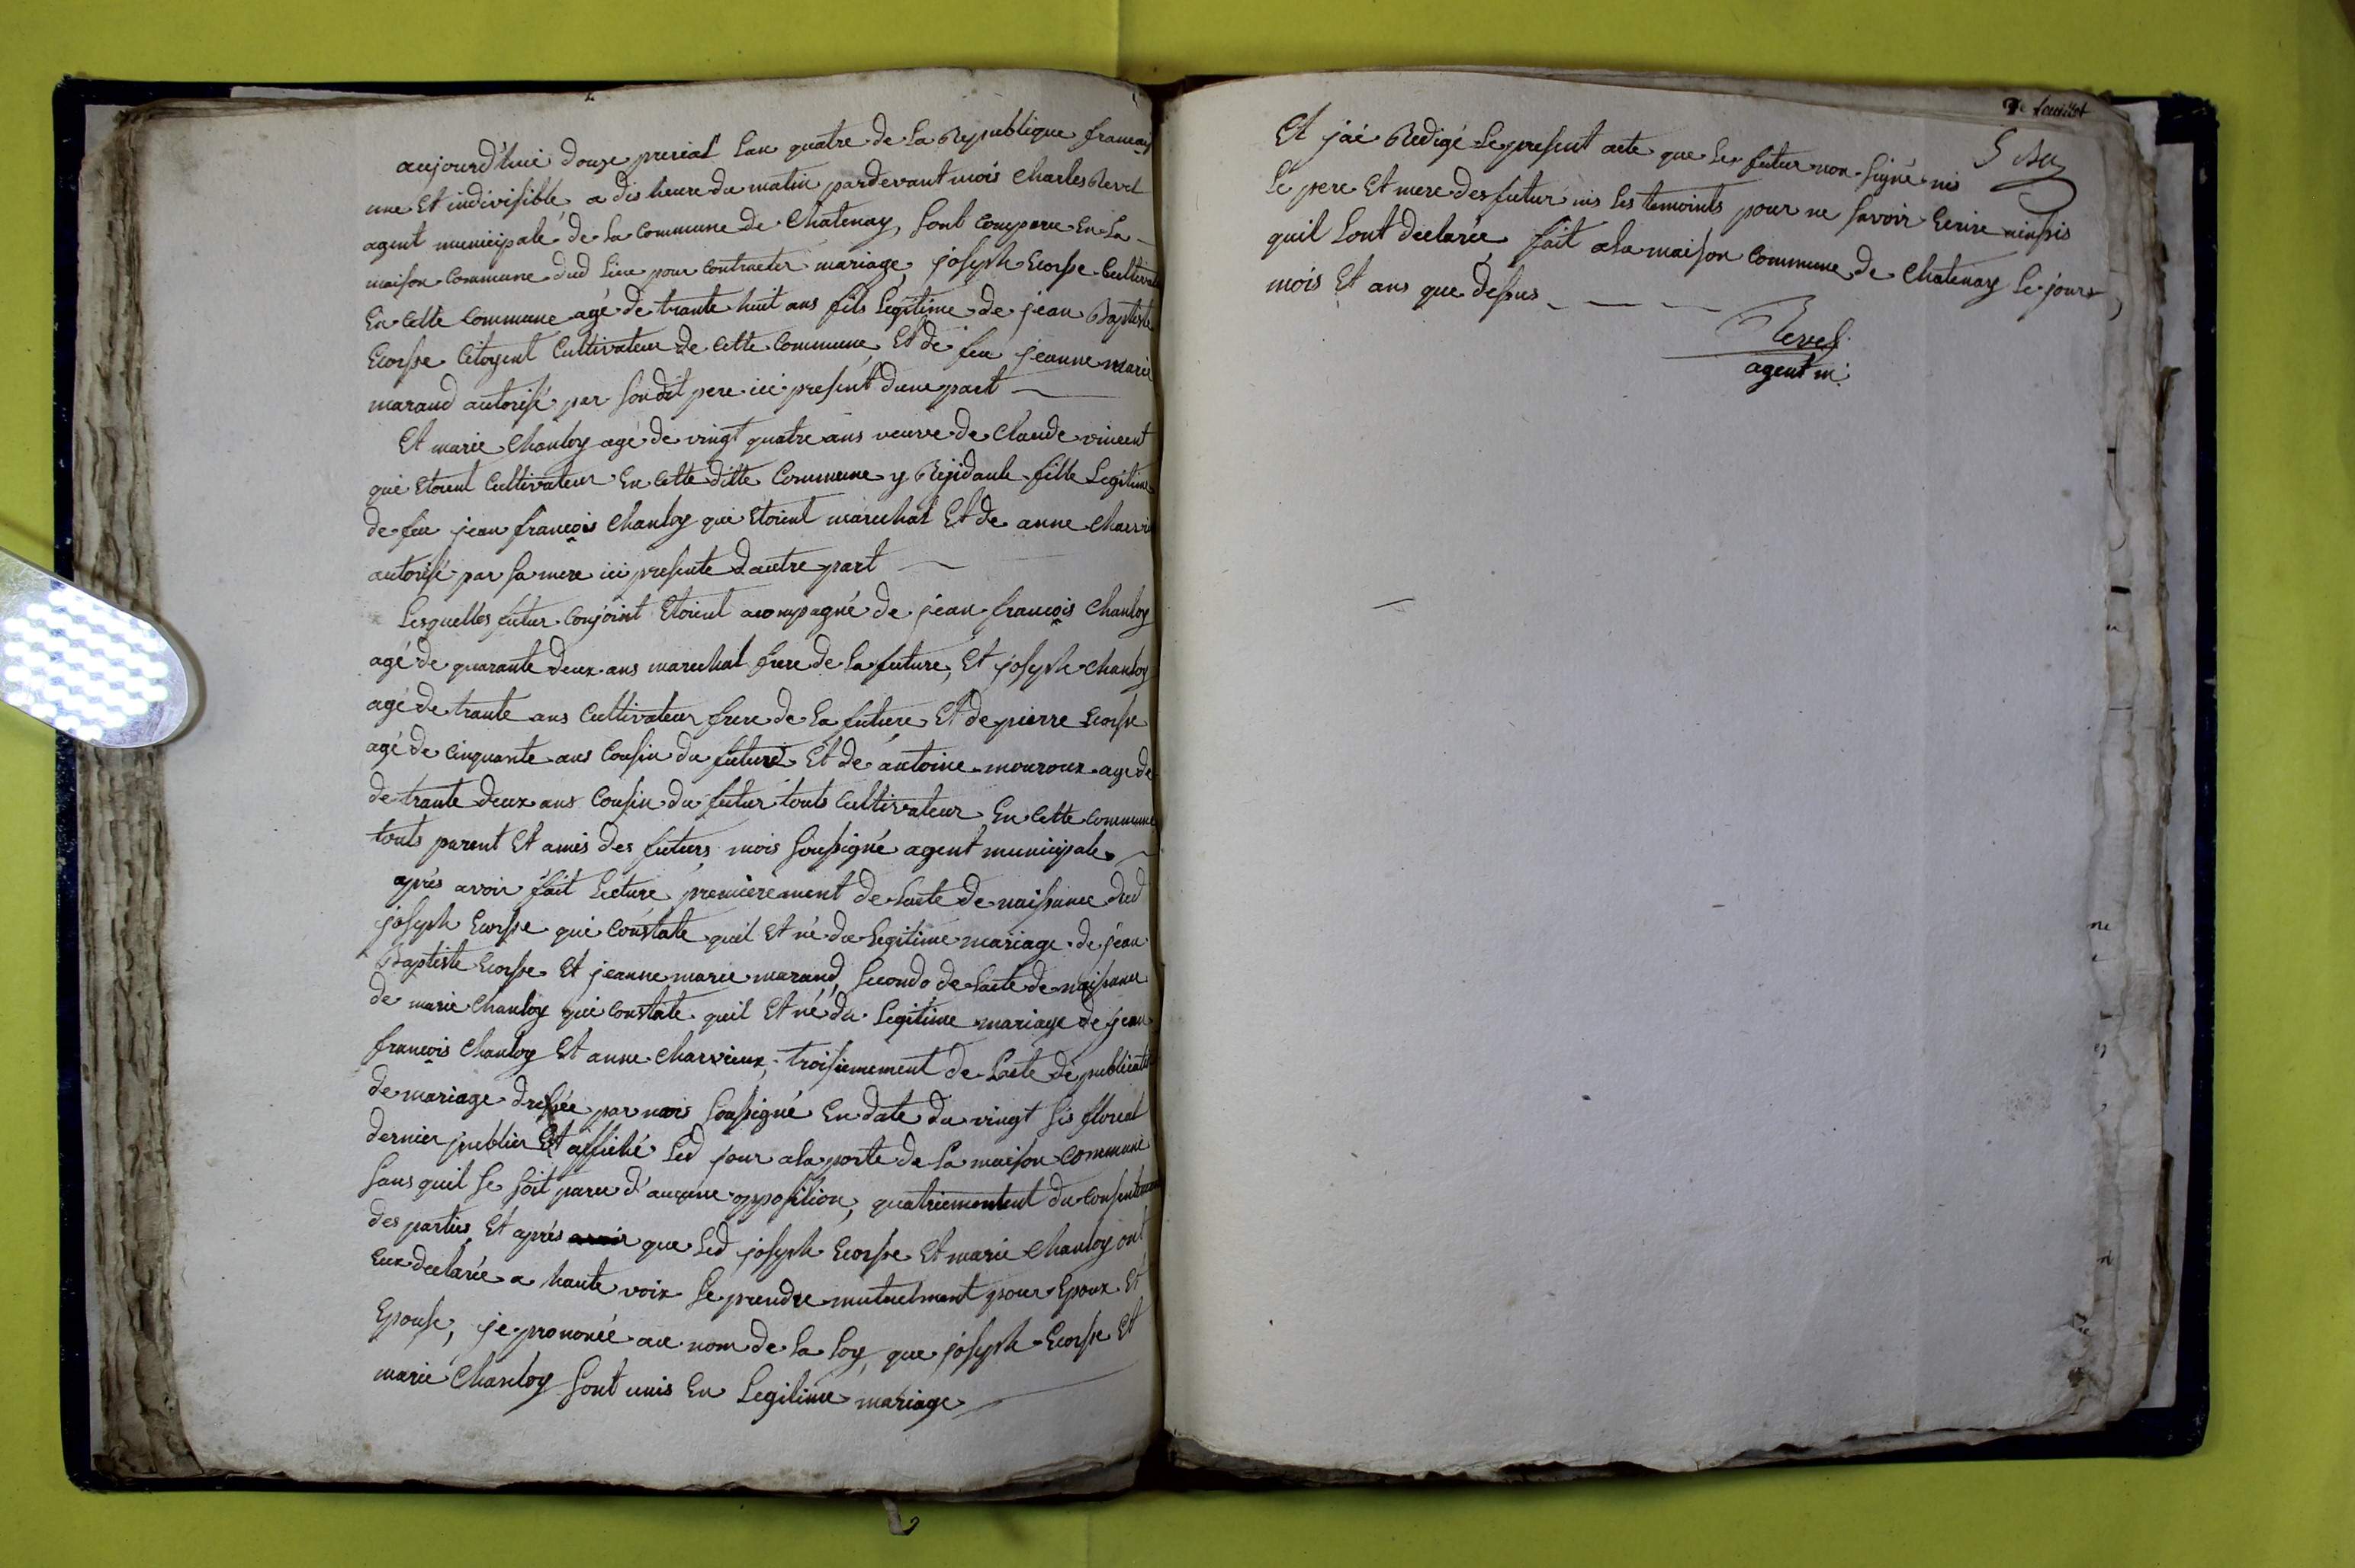 aujourd'hui douze prerial lan quatre de la Republique francais
une Et indivisible a dis heure du matin pardevant mois Charles Revel
agent municipale de la Commune de Chatenay, sont comparu En la
maison Commune dud lieu pour contracter mariage, joseph Ecorsse Cultivateur
En cette Commune agé de trante huit ans fils Legitime de jean Baptiste
Ecorsse Citoyent Cultivateur de cette Commune, Et de feu jeanne marie
maraud autorisé par sondit pere ici present dune part
Et marie Chanloy agé de vingt quatre ans veuve de Claude vincent
qui Etoient Cultivateur En cette ditte Commune y Residante fille Legitime
de feu jean francois Chanloy qui Etoient marechal Et de anne Charvieux
autorisé par sa mere ici presente dautre part
Lesquelles futur conjoint Etoient acompagné de jean francois Chanloy
agé de quarante deux ans marechal frere de la future, Et joseph Chanloy
agé de trante ans Cultivateur frere de la future, Et de pierre Ecorsse
agé de cinquante ans Cousin du futur Et de antoine mouroux age de
de trante deux ans Cousin du futur touts Cultivateur En cette commune
touts parent Et amis des futurs mois soussigné agent municipale
après avoir fait Lecture premierement de lacte de naissance dud
joseph Ecorsse qui constate quil Et né du Legitime mariage de jean
Baptiste Ecorsse Et jeanne marie maraud, secondo de lacte de naissance
de marie Chanloy qui constate quil Et né du Legitime mariage de jean
francois Chanloy Et anne Charvieux, troisiemement de lacte de publication
de mariage dressée par mois soussigné En date du vingt sis floreal
dernier publier Et affiché led jour a la porte de la maison commune
sans quil se soit paru d'aucune opposition, quatriemement du consentement
des parties, Et après que led joseph Ecorsse Et marie Chanloy ont
Eux declarée a haute voix se prendre mutuelment pour Epoux Et
Epouse, je prononcé au nom de la loy, que joseph Ecorsse Et
marie Chanloy sont unis En Legitime mariage
7e feuillet
Et jai Redigé le present acte que les futur non signé nis
le pere Et mere des futur nis les temoints pour ne savoir Ecrire ainsis
quil Lont declarée, fait a la maison Commune de Chatenay le jours,
mois Et ans que dessus
Revel
agent m.